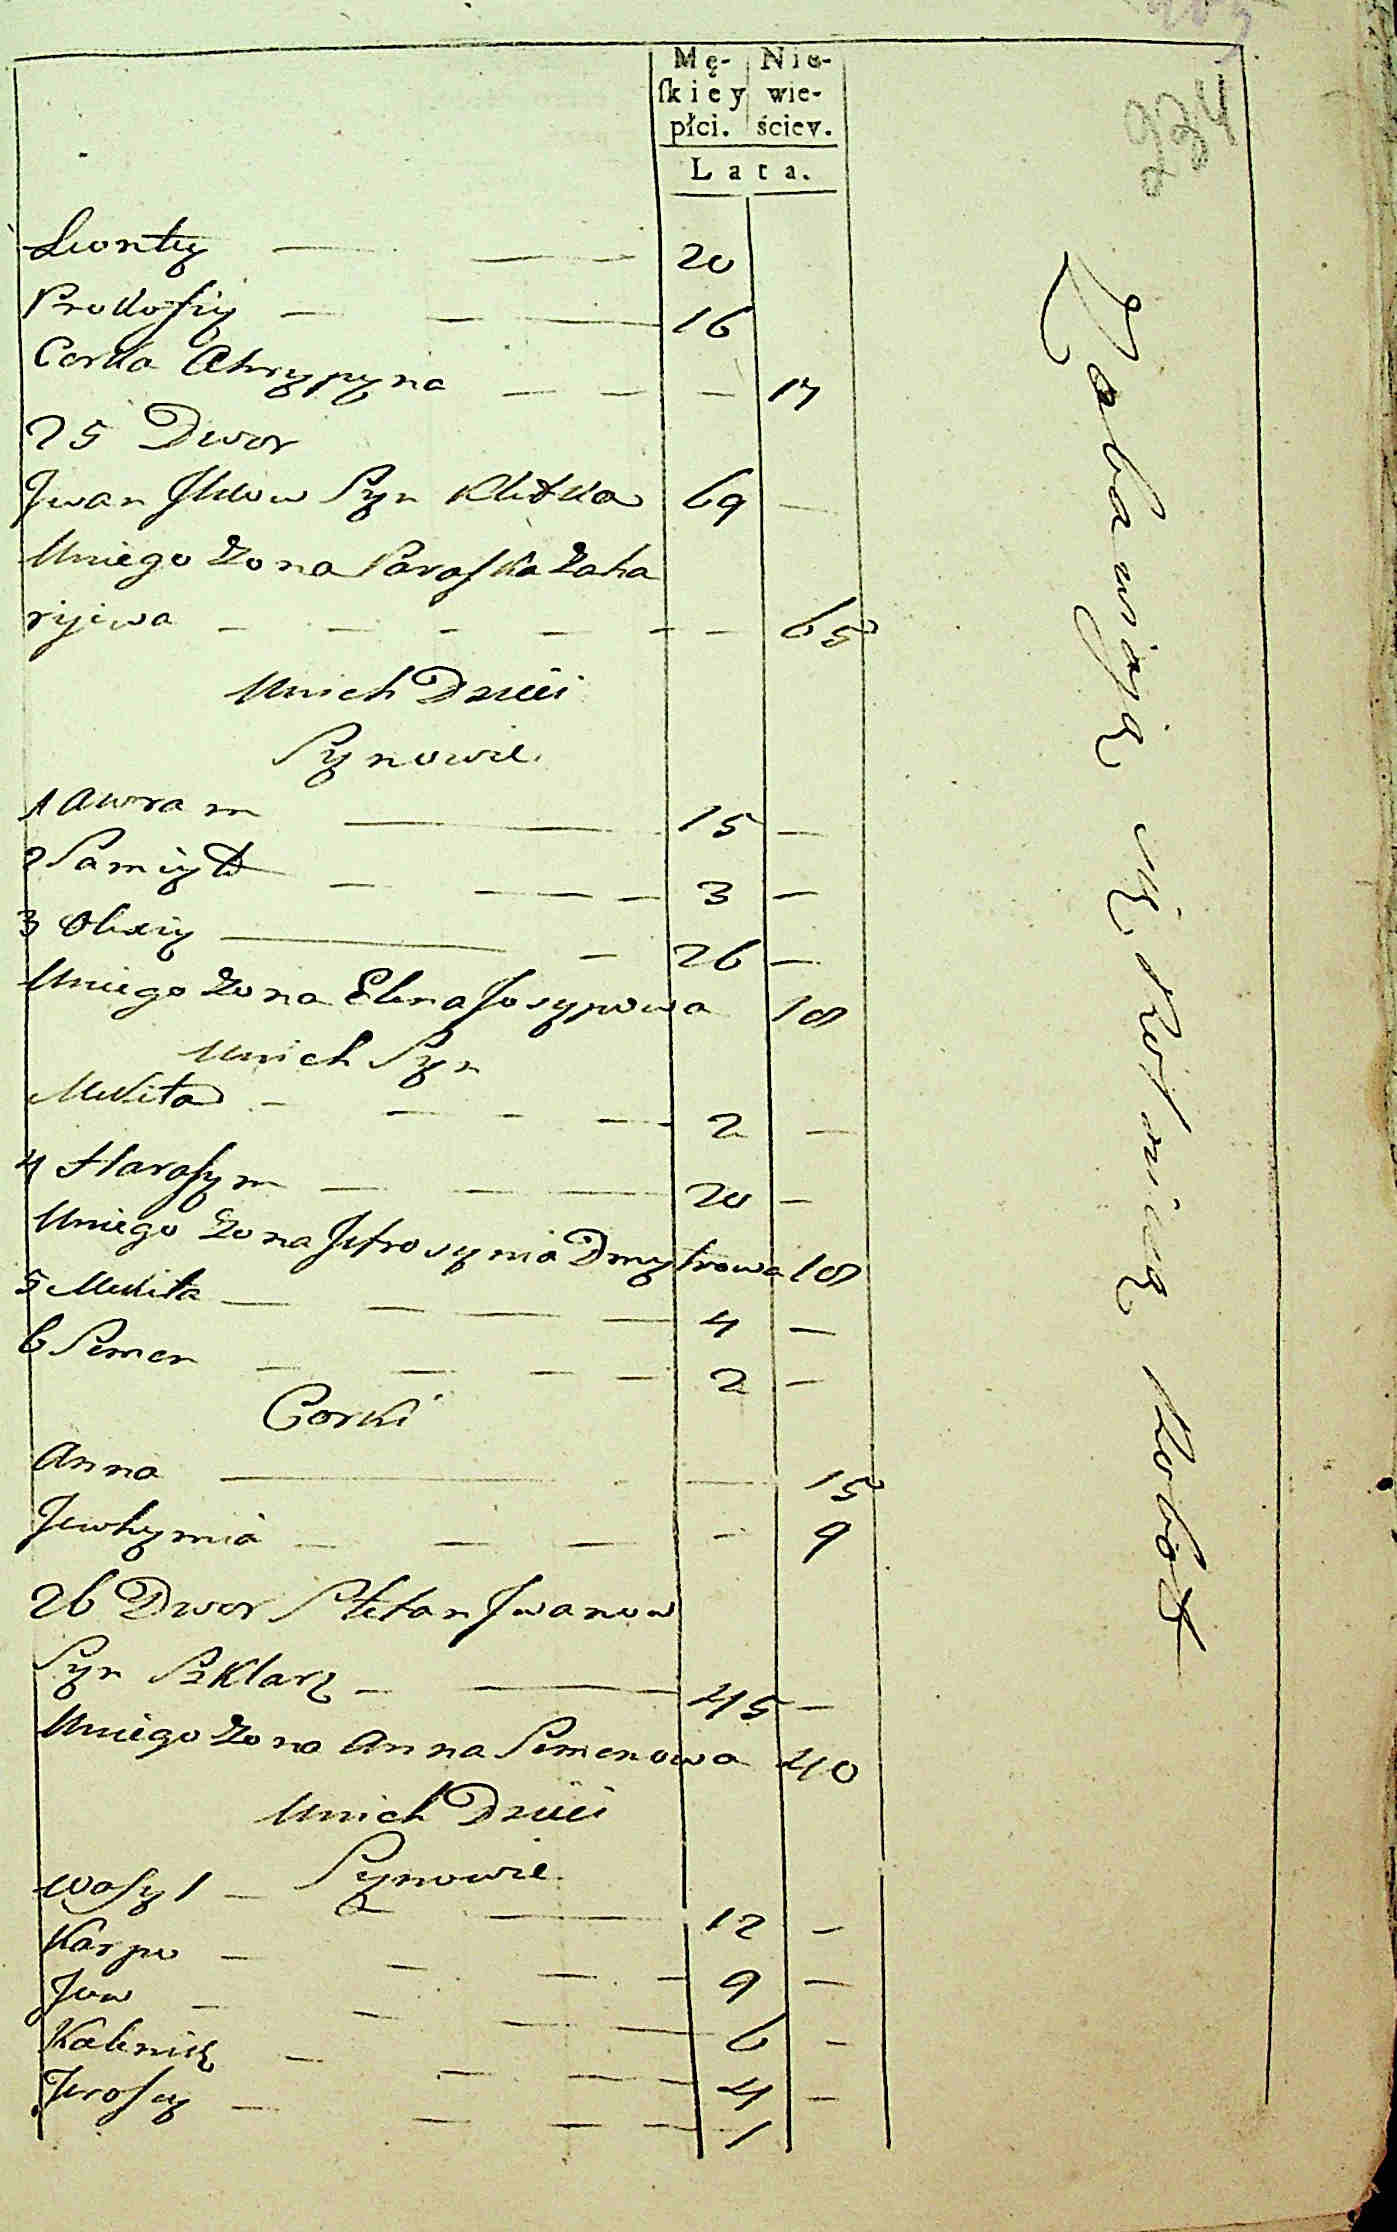 Mę- Nie-
ſkiey wie-
płci. ściey.
Lata.
234
Leontiy 20
Prokofiy 16
Corka Ahrypyna 17
25 Dwor
Jwan Jlkow Syn 69
Uniego Zona Paraſka Zaha
rijewa 65
Unich Dzieci
Synowie
1 Awram 15
2 3
3 Olexiy 26
Uniego Zona Elena Josypowa 18
Unich Syn
Mikita 2
4 Harasym 20
Uniego Zona Jefrosynia Dmytrowa 18
5 Mikita 4
6 Semen 2
Corki
Anna 15
Jewhymia 9
26 Dwor Stefan Jwanow
Syn Szklarz 45
Uniego Zona Anna Semenowa 40
Unich Dzieci
Synowie
Wasyl 12
Karpo 9
Jow 6
Kalenik 4
Jerofiy 1
Zabawiają się Rolniczą Robotą